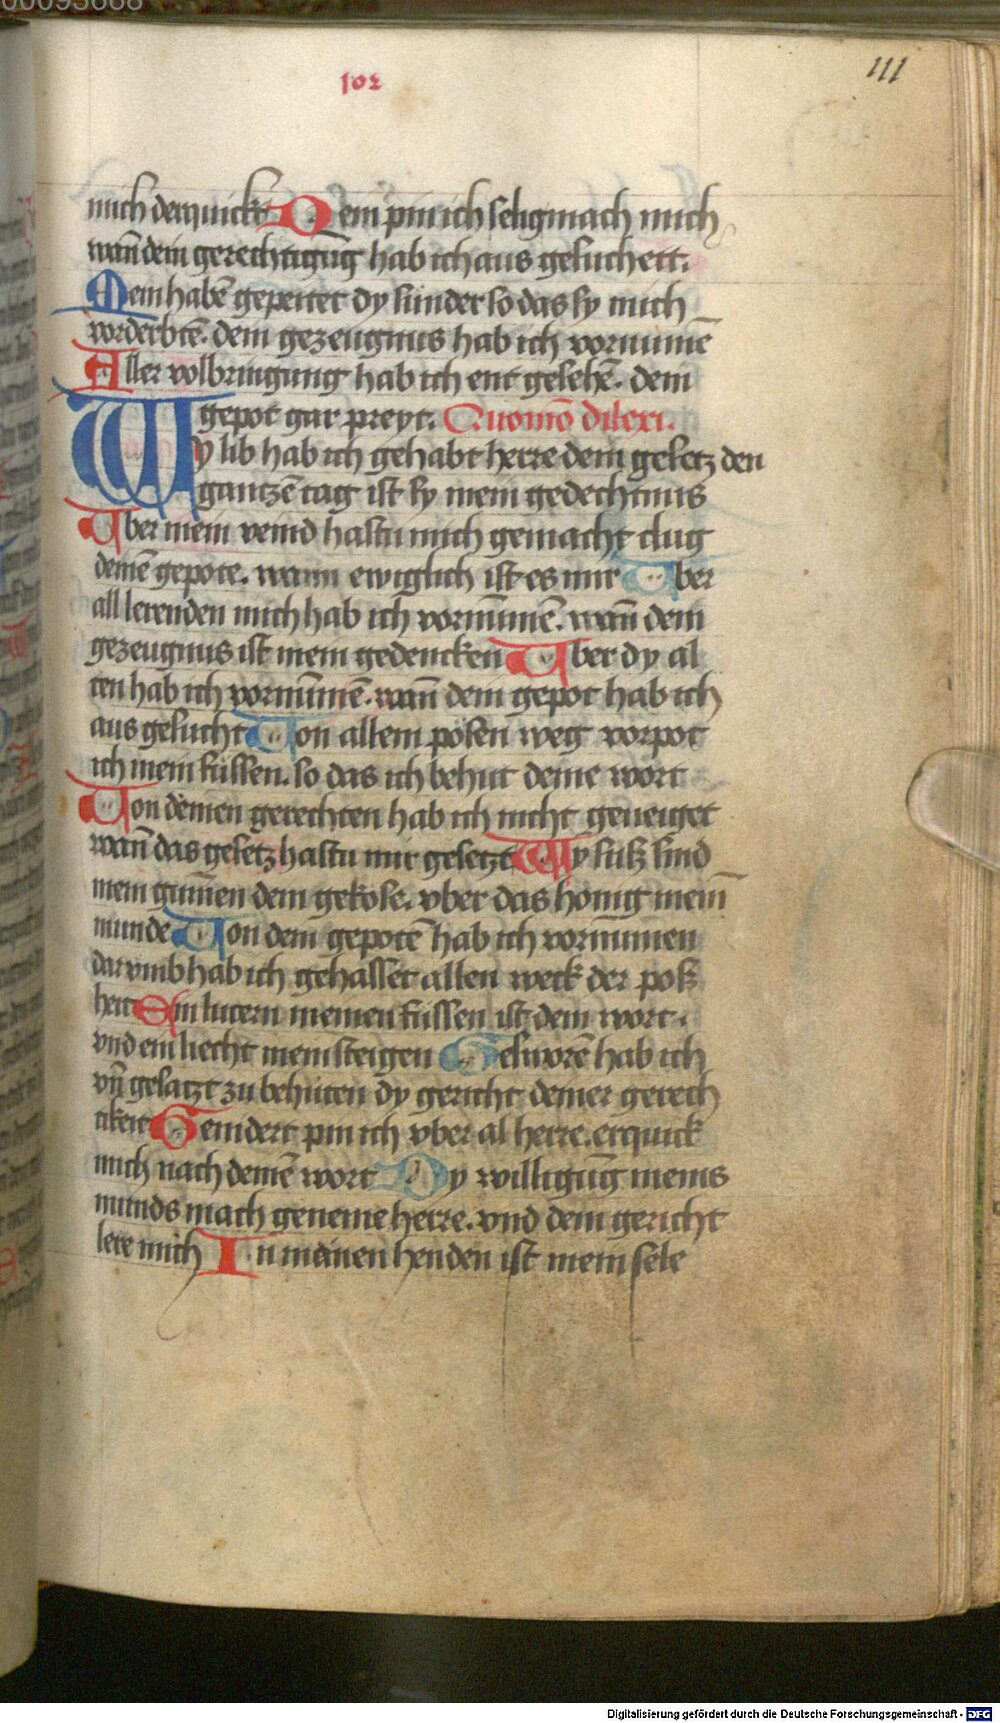 00093668
102
111
mich derquickt Dein pin ich selig mach mich
wan̄ dein gerechtigūg hab ich aus gesuchett.
Mein habē gepeitet dy sunder so das sy mich
vorderbtē. dein gezeugnus hab ich vornume
Aller volbringung hab ich ent gesehē. dein
gepot gar preyt. Quomō dilexi.
Wy lib hab ich gehabt herre dein gesetz den
gantzē tag ist sy mein gedechtnus
Vber mein veind hastu mich gemacht clug
deinē gepote. wann ewiglich ist es mir Vber
all lerenden mich hab ich vornūmē. wan̄ dein
gezeugnus ist mein gedencken Vber dy al
ten hab ich vornūmē. wan̄ dein gepot hab ich
aus gesucht Von allem posen weg vorpot
ich mein füssen. so das ich behut deine wort
Von deinen gerechten hab ich nicht geneiget
wan̄ das gesetz hastu mir gesetzt Wy suß sind
mein gumēn dein gekose. vber das honig mein̄
munde Von dein gepotē hab ich vornūmen
dar vmb hab ich gehasset allen weck der poß
heit Ein lucern meinen füssen ist dein wort.
vnd ein liecht mein steigen Gesworē hab ich
vn̄ gesatzt zu behuten dy gericht deiner gerech
tikeit Genidert pin ich vber al herre. erquick
mich nach deinē wort Dy willigūg meins
munds mach geneme herre. vnd dein gericht
lere mich In meinen henden ist mein sele
Digitalisierung gefördert durch die Deutsche Forschungsgemeinschaft - DFG